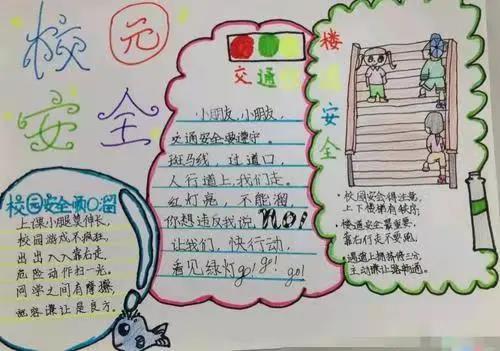 校园
安全
校园安全顺口溜
上课小腿莫伸长,
校园游戏不疯狂,
出出入入靠右走,
危险动作扫一光,
同学之间有摩擦,
包容谦让是良方。
交通
小朋友,小朋友,
交通安全要遵守。
斑马线,过道口,
人行道上,我们走。
红灯亮,不能溜,
你想违反我说NO!
让我们,快行动,
看见绿灯go! go! go!
楼
安
全
·校园安全得注意,
上下楼梯有秩序,
·楼道安全最重要,
靠右行走不要跑,
·遇道上拥挤停三分,
主动谦让路畅通。